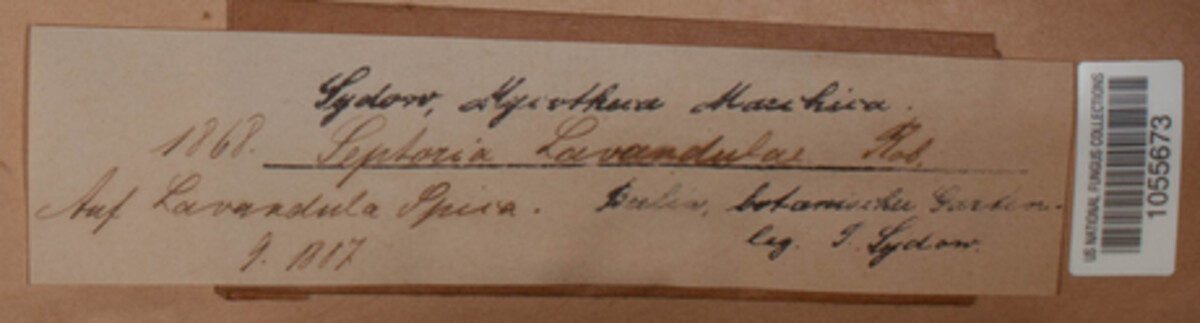 Sydow, Mycotheca Marchica.
1868. Septoria Lavandulae Rob.
Auf Lavandula Spica. Berlin, botanischer Garten.
9. 1887
leg. P. Sydow.
US NATIONAL FUNGUS COLLECTIONS
1055673